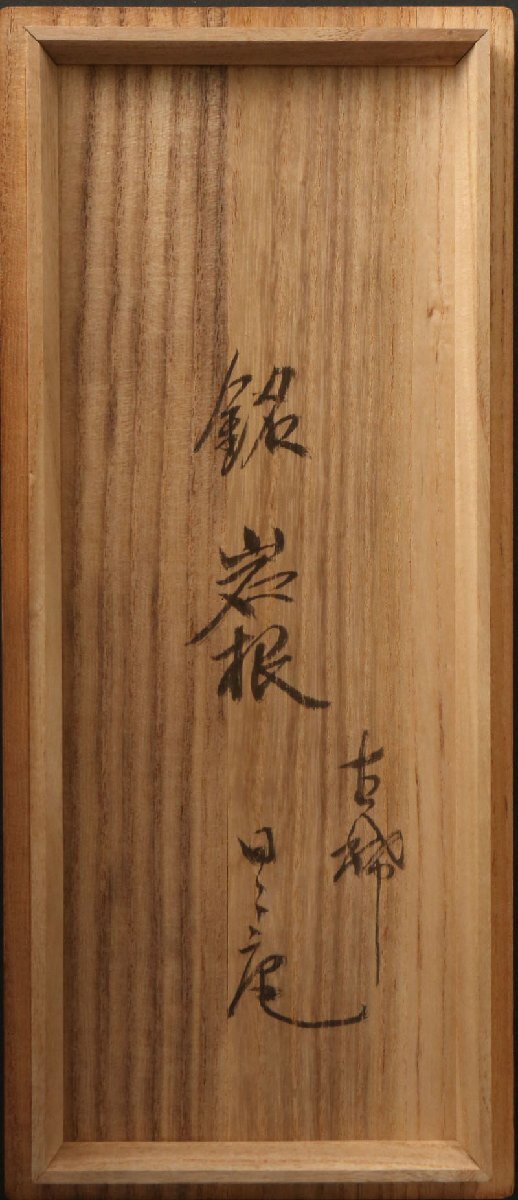 銘 岩根
古稀
日々庵